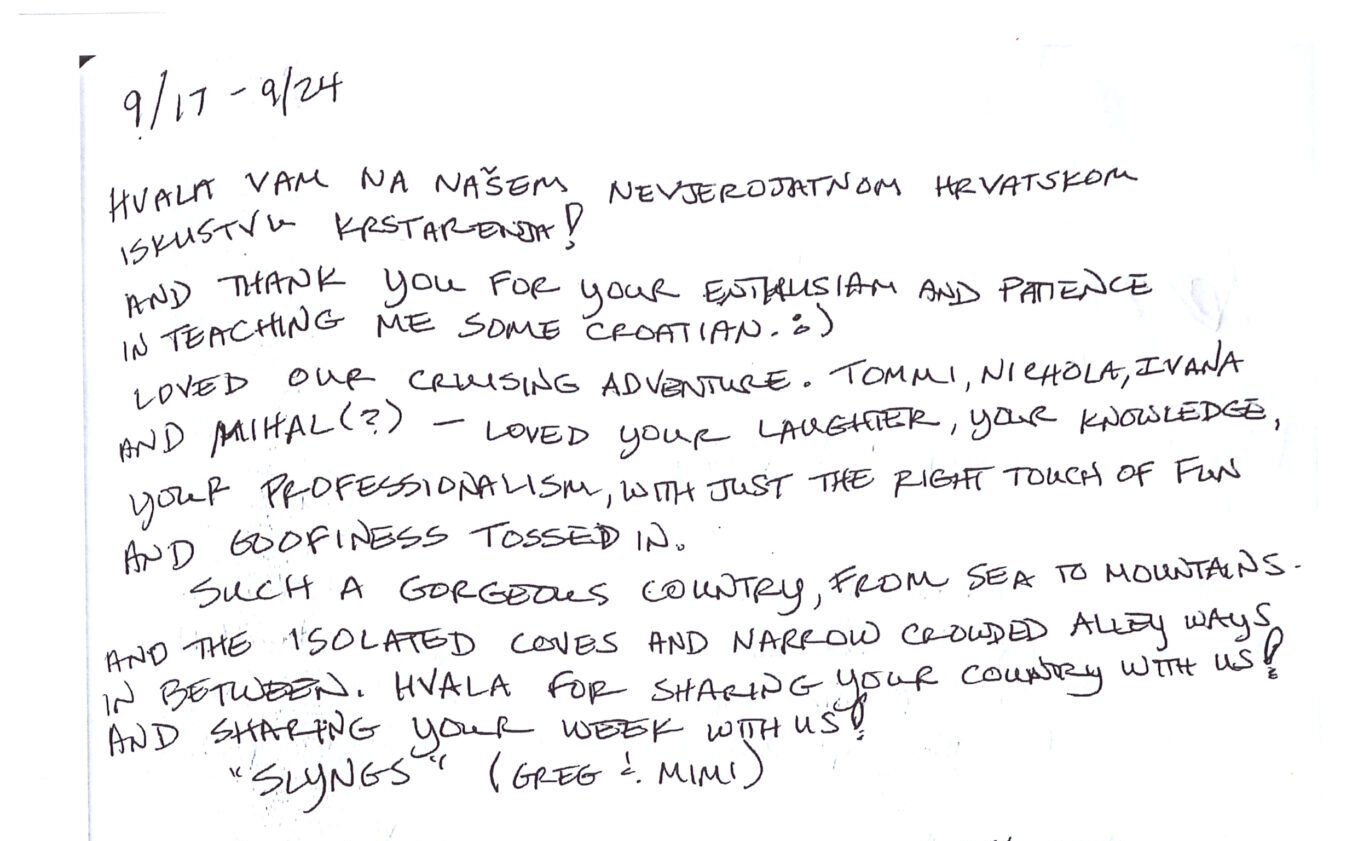 9/17 - 9/24
HVALA VAM NA NAŠEM NEVJEROJATNOM HRVATSKOM
ISKUSTVU KRSTARENJA!
AND THANK YOU FOR YOUR ENTHUSIAM AND PATIENCE
IN TEACHING ME SOME CROATIAN. :)
LOVED OUR CRUISING ADVENTURE. TOMMI, NICHOLA, IVANA
AND MIHAL(?) — LOVED YOUR LAUGHTER, YOUR KNOWLEDGE,
YOUR PROFESSIONALISM, WITH JUST THE RIGHT TOUCH OF FUN
AND GOOFINESS TOSSED IN.
SUCH A GORGEOUS COUNTRY, FROM SEA TO MOUNTAINS -
AND THE ISOLATED COVES AND NARROW CROWDED ALLEY WAYS
IN BETWEEN. HVALA FOR SHARING YOUR COUNTRY WITH US!
AND SHARING YOUR WEEK WITH US!
"SLYNGS" (GREG & MIMI)